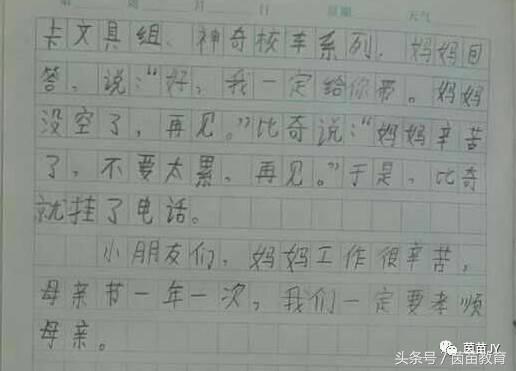 第 周 月 日 星期 天气
卡文具组、神奇校车系列。妈妈回
答,说:“好,我一定给你带。妈妈
没空了,再见。”比奇说:“妈妈辛苦
了,不要太累,再见。”于是,比奇
就挂了电话。
小朋友们,妈妈工作很辛苦,
母亲节一年一次,我们一定要孝顺
母亲。
茵苗JY
头条号/茵苗教育